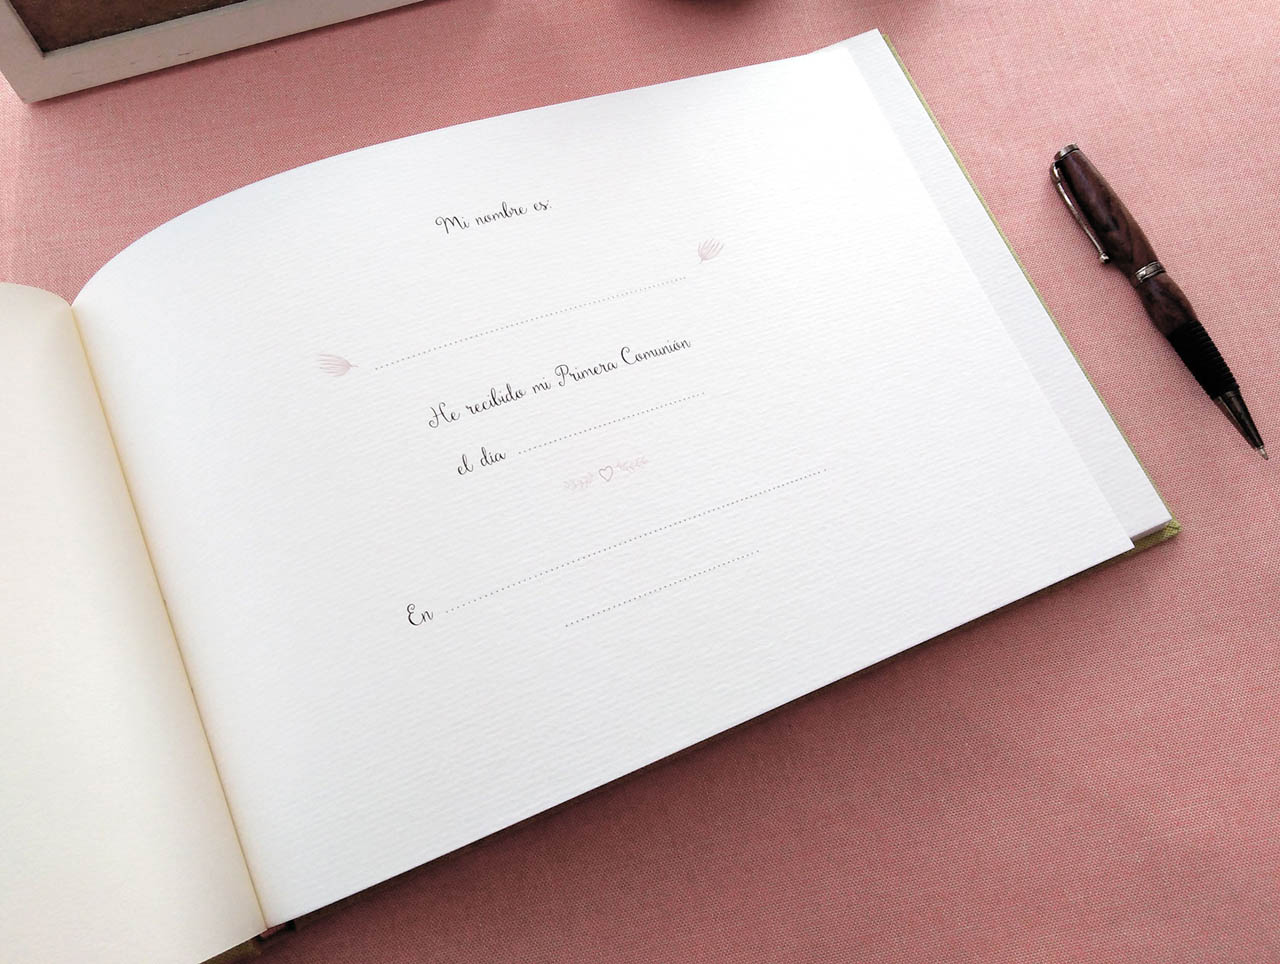 Mi nombre es:
He recibido mi Primera Comunión
el día
En